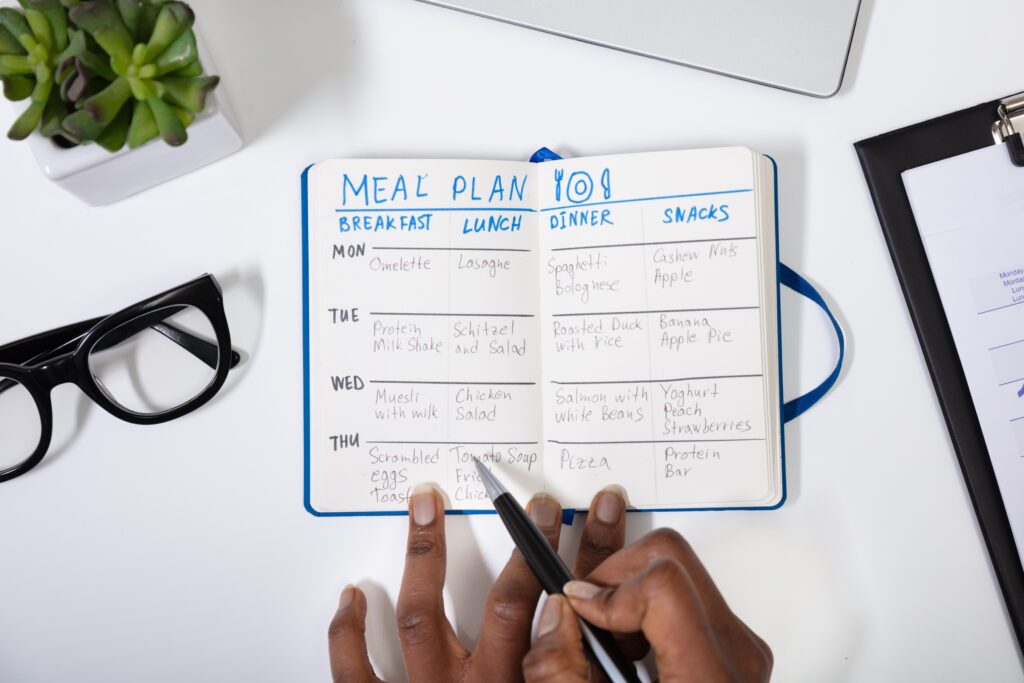 MEAL PLAN
BREAKFAST LUNCH DINNER SNACKS
MON
Omelette
Lasagne
Spaghetti
Bolognese
Cashew Nuts
Apple
TUE
Protein
Milk Shake
Schitzel
and Salad
Roasted Duck
with rice
Banana
Apple Pie
WED
Muesli
with milk
Chicken
Salad
Salmon with
white Beans
Yoghurt
Peach
Strawberries
THU
Scrambled
eggs
Toast
Tomato Soup
Pizza
Protein
Bar
Monday